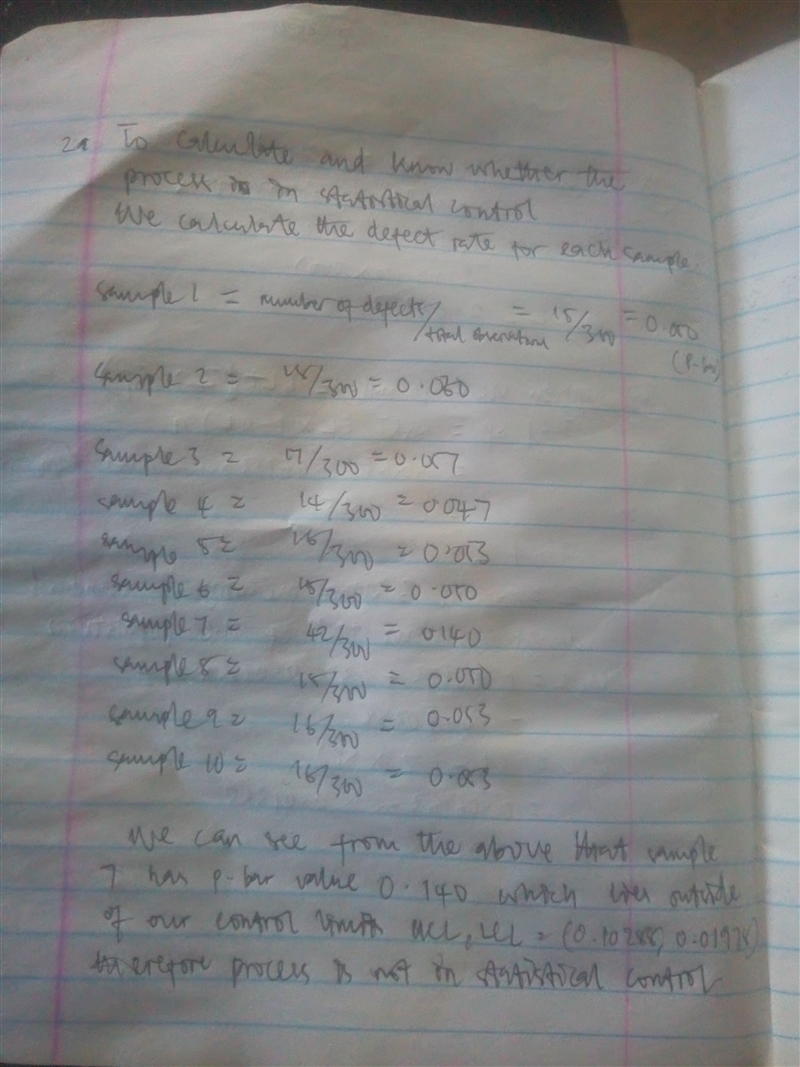 2a To calculate and know whether the
process is in statistical control
We calculate the defect rate for each sample.
Sample 1 = number of defects/total observations = 15/300 = 0.050
(P-bar)
Sample 2 = 15/300 = 0.050
Sample 3 = 17/300 = 0.057
sample 4 = 14/300 = 0.047
sample 5 = 16/300 = 0.053
sample 6 = 15/300 = 0.050
sample 7 = 42/300 = 0.140
sample 8 = 15/300 = 0.050
sample 9 = 16/300 = 0.053
sample 10 = 16/300 = 0.053
We can see from the above that sample
7 has p-bar value 0.140 which lies outside
of our control limits UCL, LCL = (0.10288, 0.01978)
therefore process is not in statistical control